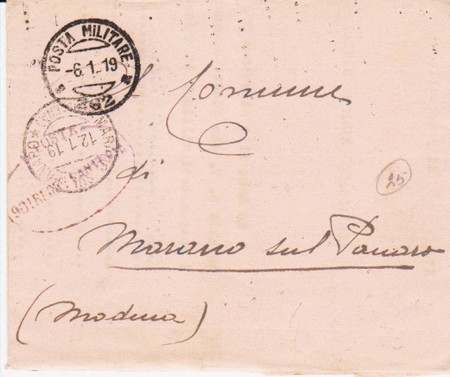 POSTA MILITARE
-6.1.19
262
Al Comune
12.1.19
di
25
Marano sul Panaro
(Modena)